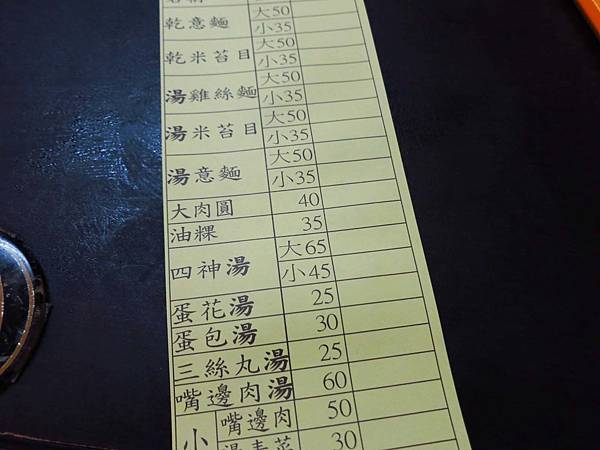 乾意麵 大50
小35
乾米苔目 大50
小35
湯雞絲麵 大50
小35
湯米苔目 大50
小35
湯意麵 大50
小35
大肉圓 40
油粿 35
四神湯 大65
小45
蛋花湯 25
蛋包湯 30
三絲丸湯 25
嘴邊肉湯 60
小 嘴邊肉 50
燙青菜 30